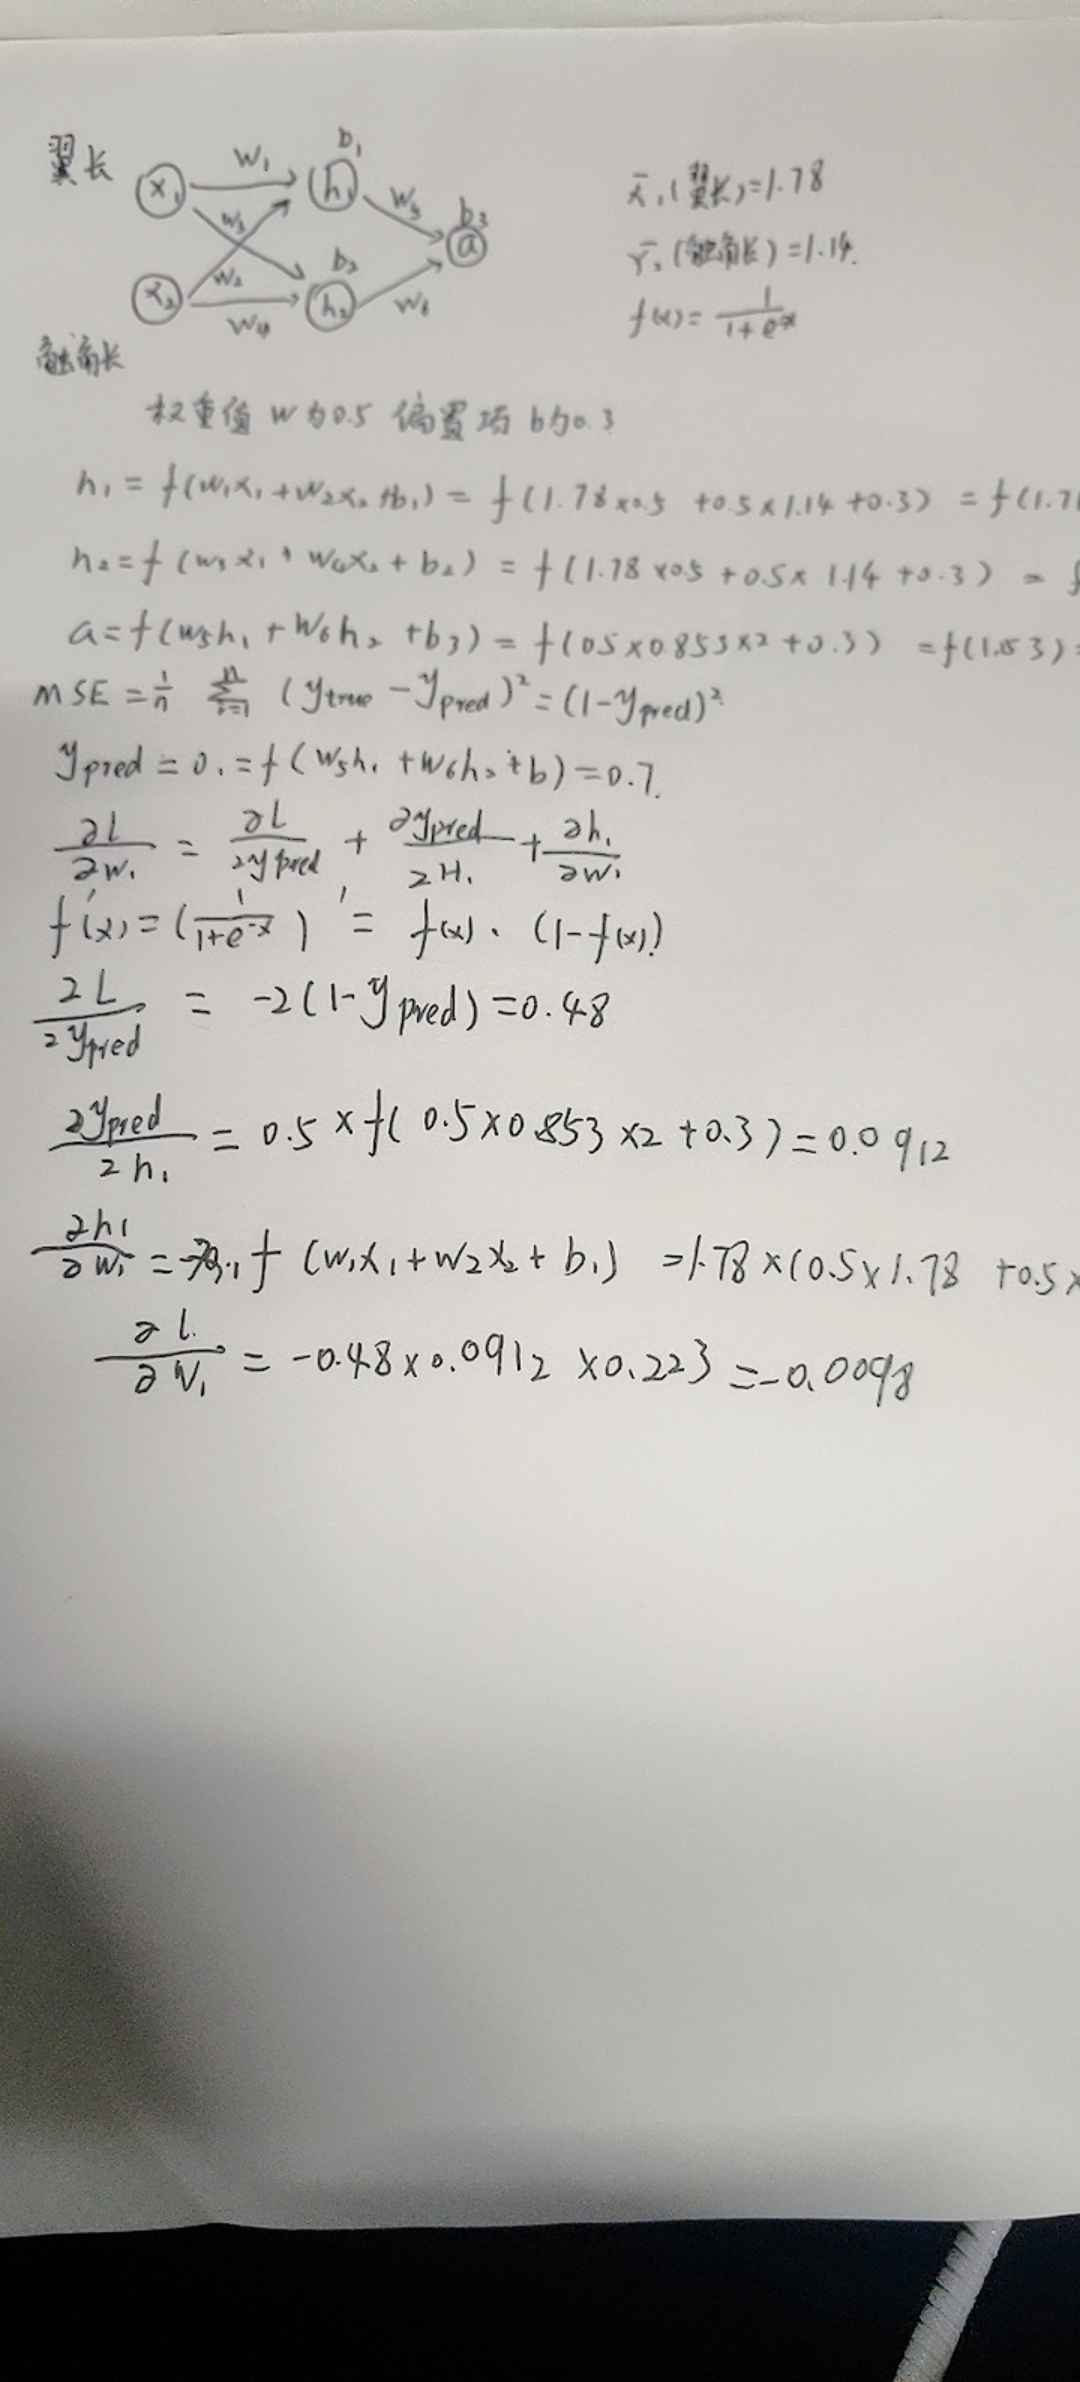 翼长 x₁ w₁ h₁ b₁ w₅ b₃ a
w₃ w₂ b₂
x₂ w₄ h₂ w₆
触角长
x̄₁(翼长)=1.78
Ȳ₁(触角长)=1.14.
f(x)=1/(1+e⁻ˣ)
权重值 w为0.5 偏置项 b为0.3
h₁ = f(w₁x₁+w₂x₂+b₁) = f(1.78×0.5 +0.5×1.14+0.3) = f(1.71
h₂=f(w₃x₁+w₄x₂+b₂) = f(1.78×0.5+0.5×1.14+0.3) = f
a=f(w₅h₁+w₆h₂+b₃)=f(0.5×0.853×2+0.3) =f(1.153)=
MSE=1/n Σⁿᵢ₌₁ (y_true-y_pred)²=(1-y_pred)²
y_pred=0.=f(w₅h₁+w₆h₂+b)=0.7.
∂L/∂w₁ = ∂L/∂y_pred + ∂y_pred/∂H₁ + ∂h₁/∂w₁
f'(x)=(1/(1+e⁻ˣ))' = f(x).(1-f(x))
∂L/∂y_pred = -2(1-y_pred)=0.48
∂y_pred/∂h₁ = 0.5×f(0.5×0.853×2+0.3)=0.0912
∂h₁/∂w₁ = f(w₁x₁+w₂x₂+b₁) =1.78×(0.5×1.78+0.5×
∂L/∂w₁ = -0.48×0.0912×0.223=-0.0098